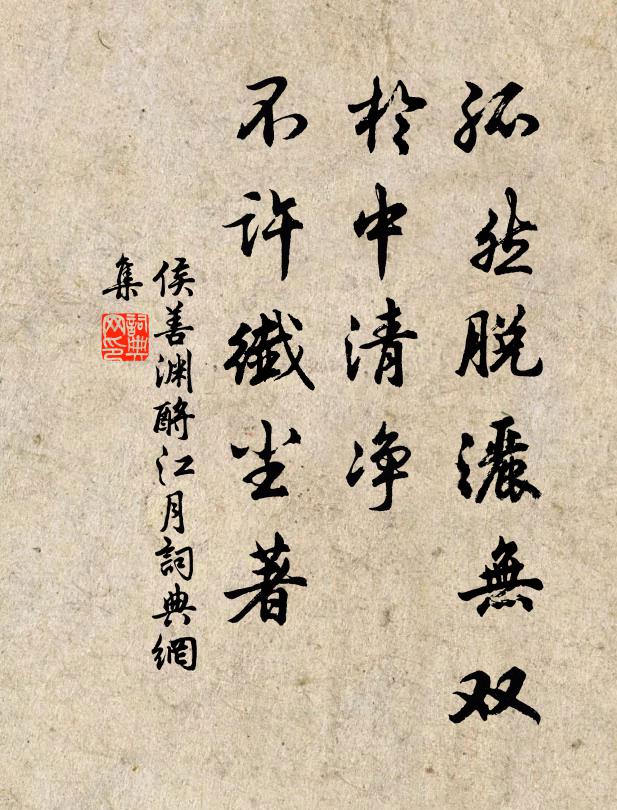 孤然脱灑無双
於中清净
不許纖尘著
侯善渊酹江月詞典網
集
詞典网印